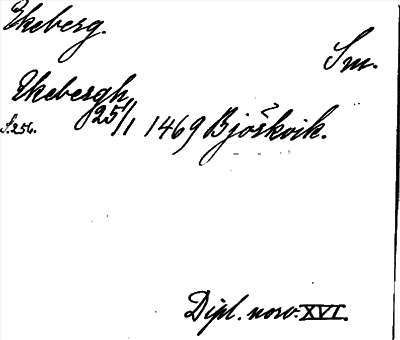 Ekeberg.
Sm.
Ekebergh
S. 256. 25/1 1469 Bjöřkvik.
Dipl. norv. XVI.